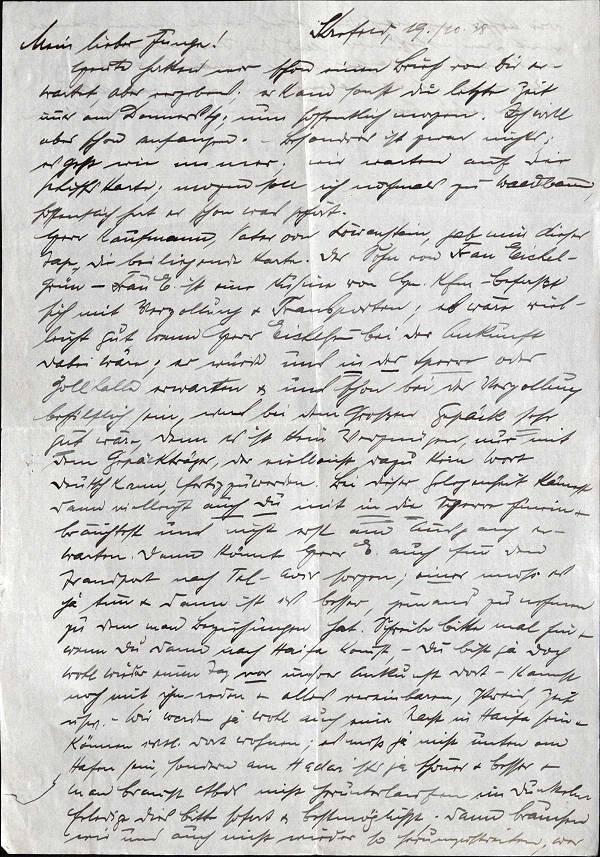 Krefeld, 19./10.38
Mein lieber Junge!
Heute hatten wir schon einen Brief von Dir er-
wartet, aber vergebens; er kam sonst die letzte Zeit
immer am Donnerstag; nun hoffentlich morgen. Ich will
aber schon anfangen. - Besonderes ist zwar nichts;
es geht wie immer; wir warten auf die
Schiffskarte; morgen soll ich nochmals zu Waldbaum,
hoffentlich hat er schon was gehört.
Herr Kaufmann, Vater von Löwenstein, gab mir dieser
Tage die beiliegende Karte. Der Sohn von Frau Eichel-
grün - Frau E. ist eine Kusine von Hr. Kfm - befaßt
sich mit Verzollung & Transporten; es wäre viel-
leicht gut wenn Herr Eichelgr. bei der Ankunft
dabei wäre; er würde uns in der Sperre oder
Zollhalle erwarten & uns schon bei der Verzollung
behilflich sein, was bei dem großen Gepäck sehr
gut wäre, denn es ist kein Vergnügen, nur mit
dem Gepäckträger, der vielleicht dazu kein Wort
deutsch kann, fertigzuwerden. Bei dieser Gelegenheit könntest
Dann vielleicht auch Du mit in die Sperre hinein &
bräuchtest uns nicht erst am Ausgang er-
warten. Dann könnte Herr E. auch für den
Transport nach Tel-Aviv sorgen; einer muß es
ja tun & dann ist es besser, jemand zu nehmen
zu dem man Beziehungen hat. Schreibe bitte mal hin &
wenn Du dann nach Haifa kommst - Du bist ja doch
wohl wieder einen Tag vor unsrer Ankunft dort - kannst
noch mit ihm reden & alles vereinbaren, Preis, Zeit
usw. - Wir werden ja wohl auch eine Nacht in Haifa sein &
können evtl. dort wohnen; es muß ja nicht unten am
Hafen sein, sondern am Hadar ist ja schöner & besser &
man braucht Abds nicht herumlaufen im Dunkeln
Erledige dies bitte sofort & bestmöglichst. Dann brauchen
wir uns auch nicht wieder so herumzustreiten, wer